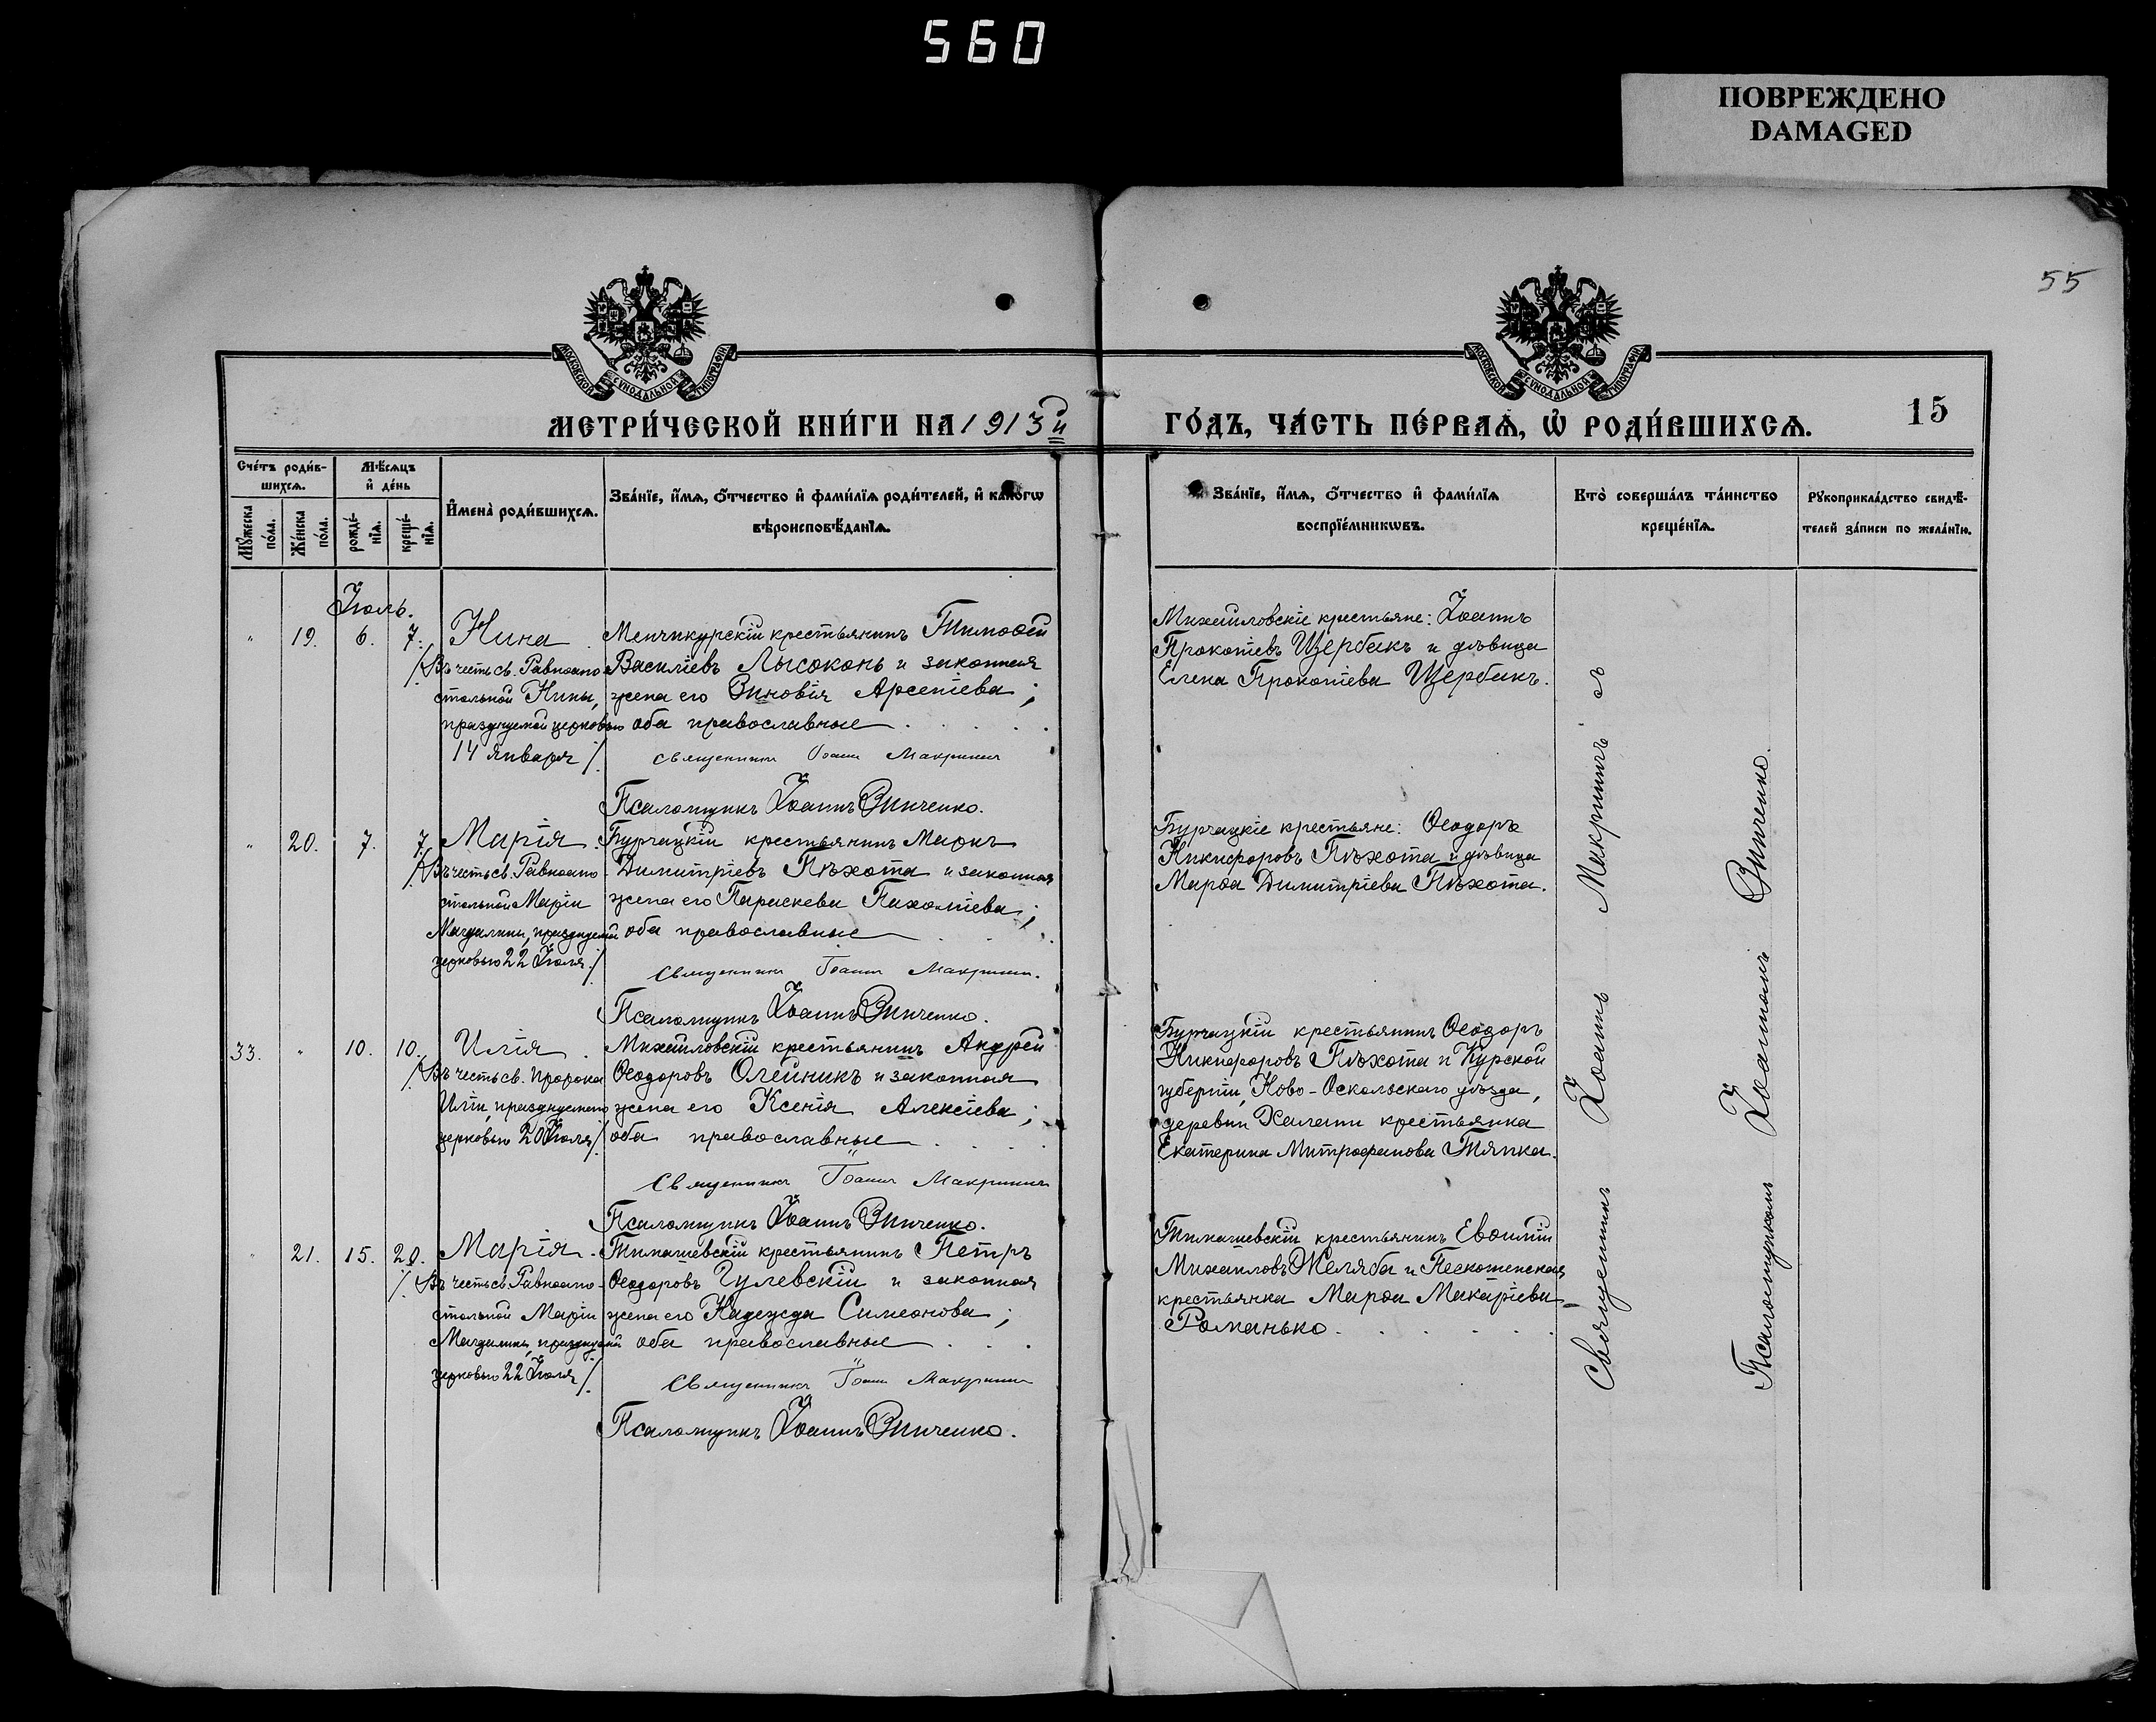 560
ПОВРЕЖДЕНО
DAMAGED
55
МОСКОВСКОЙ СѴНОДАЛЬНОЙ ТИПОГРАФІИ
МОСКОВСКОЙ СѴНОДАЛЬНОЙ ТИПОГРАФІИ
МЕТРИ́ЧЕСКОЙ КНИ́ГИ НА 1913й
ГО́ДЪ, ЧА́СТЬ ПЕ́РВАѦ, Ѡ҆ РОДИ́ВШИХСѦ.
15
Сче́тъ роди́в-
шихсѧ.
Мѣ́сѧцъ
и҆ де́нь
Мꙋ́жеска по́ла.
Же́нска по́ла.
рожде́-нїѧ.
креще́-нїѧ.
И҆мена̀ роди́вшихсѧ.
Зва́нїе, и҆́мѧ, ѻ҆́тчество и҆ фами́лїѧ роди́телей, и҆ како́гѡ
вѣроисповѣ́данїѧ.
Зва́нїе, и҆́мѧ, ѻ҆́тчество и҆ фами́лїѧ
воспрїе́мникѡвъ.
Кто̀ соверша́лъ та́инство
креще́нїѧ.
Рꙋкоприкла́дство свидѣ́-
телей за́писи по жела́нїю.
Іюль.
" 19. 6. 7.
Нина
/Въ честь св. Равноапо
стольной Нины,
празднуемой церковью
14 Января/.
Менчикурскій крестьянинъ Тимоѳей
Василіевъ Лысоконь и законная
жена его Зиновія Арсеніева;
оба православные
Священникъ Іоаннъ Макринин
Псаломщикъ Іоаннъ Зинченко.
Михайловскіе крестьяне: Іоаннъ
Прокопіевъ Щербакъ и дѣвица
Елена Прокопіева Щербакъ.
" 20. 7. 7.
Марія.
/Въ честь св. Равноапо-
стольной Маріи
Магдалины, празднуемой
церковью 22 Іюля./
Бурчацкій крестьянинъ Маркъ
Димитріевъ Пѣхота и законная
жена его Параскева Пахоміева;
оба православные
Священникъ Іоаннъ Макринин.
Псаломщикъ Іоаннъ Зинченко.
Бурчацкіе крестьяне: Ѳеодоръ
Никифоровъ Пѣхота и дѣвица
Марѳа Димитріева Пѣхота.
33. " 10. 10.
Илія.
/Въ честь св. Пророка
Иліи, празднуемаго
церковью 20 Іюля/.
Михайловскій крестьянинъ Андрей
Ѳеодоровъ Олейникъ и законная
жена его Ксенія Алексіева;
оба православные
Священникъ Іоаннъ Макрининъ
Псаломщикъ Іоаннъ Зинченко.
Бурчацкій крестьянинъ Ѳеодоръ
Никифоровъ Пѣхота и Курской
губерніи, Ново-Оскольскаго уѣзда,
деревни Халани крестьянка
Екатерина Митрофанова Тяпка.
" 21. 15. 20.
Марія.
/Въ честь св. Равноапо-
стольной Маріи
Магдалины, празднуемой
церковью 22 Іюля/.
Тимашевскій крестьянинъ Петръ
Ѳеодоровъ Гулевскій и законная
жена его Надежда Симеонова;
оба православные
Священникъ Іоаннъ Макринин
Псаломщикъ Іоаннъ Зинченко.
Тимашевскій крестьянинъ Евѳимій
Михаиловъ Желяба и Пескошенская
крестьянка Марѳа Макаріева
Романько.
Священникъ Іоаннъ Макрининъ съ
Псаломщикомъ Іоанномъ Зинченко.